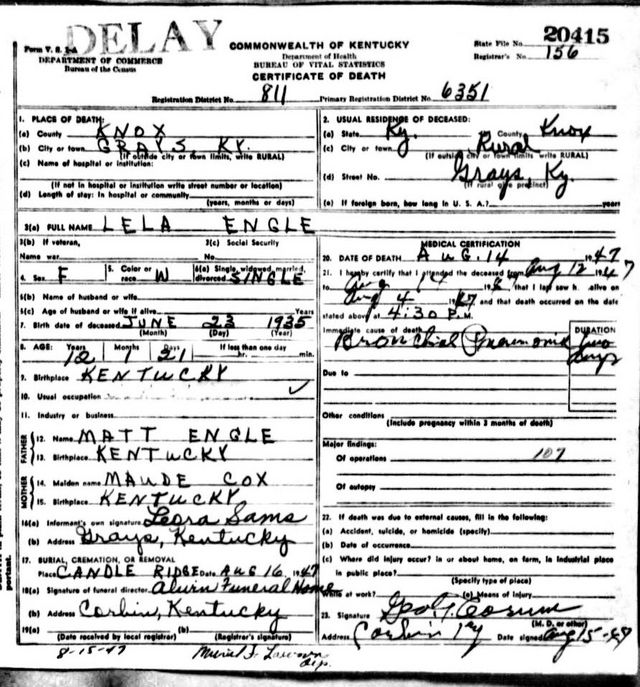 DELAY
Form V. S. 1-A
DEPARTMENT OF COMMERCE
Bureau of the Census
COMMONWEALTH OF KENTUCKY
Department of Health
BUREAU OF VITAL STATISTICS
CERTIFICATE OF DEATH
State File No. 20415
Registrar's No. 156
Registration District No. 811 Primary Registration District No. 6351
1. PLACE OF DEATH:
(a) County KNOX
(b) City or town GRAYS, KY.
(If outside city or town limits, write RURAL)
(c) Name of hospital or institution:
(If not in hospital or institution write street number or location)
(d) Length of stay: In hospital or community
(years, months or days)
2. USUAL RESIDENCE OF DECEASED:
(a) State Ky. County Knox
(c) City or town Rural
(If outside city or town limits write RURAL)
(d) Street No. Grays, Ky.
(If rural give precinct)
(e) If foreign born, how long in U. S. A.? years
3(a) FULL NAME LELA ENGLE
3(b) If veteran, 3(c) Social Security
Name war No.
4. Sex F 5. Color or race W 6(a) Single, widowed, married, divorced SINGLE
6(b) Name of husband or wife
6(c) Age of husband or wife if alive Years
7. Birth date of deceased JUNE 23 1935
(Month) (Day) (Year)
8. AGE: Years Months Days If less than one day
12 1 21 hr. min.
9. Birthplace KENTUCKY
10. Usual occupation
11. Industry or business
FATHER
12. Name MATT ENGLE
13. Birthplace KENTUCKY
MOTHER
14. Maiden name MAUDE COX
15. Birthplace KENTUCKY
16(a) Informant's own signature Leora Sams
(b) Address Grays, Kentucky
17. BURIAL, CREMATION, OR REMOVAL
Place CANDLE RIDGE Date AUG 16 1947
18(a) Signature of funeral director Funeral Home
(b) Address Corbin, Kentucky
19(a) (b)
(Date received by local registrar) (Registrar's signature)
8-15-47
MEDICAL CERTIFICATION
20. DATE OF DEATH AUG. 14 1947
21. I hereby certify that I attended the deceased from Aug 12 1947
to Aug 14 1947 that I last saw h alive on
Aug 4 1947 and that death occurred on the date
stated above at 4:30 P.M.
Immediate cause of death DURATION
Bronchial Pneumonia two days
Due to
Other conditions
(Include pregnancy within 3 months of death)
Major findings:
Of operations 107
Of autopsy
22. If death was due to external causes, fill in the following:
(a) Accident, suicide, or homicide (specify)
(b) Date of occurrence
(c) Where did injury occur? In or about home, on farm, in industrial place
in public place?
(Specify type of place)
While at work? (e) Means of injury
23. Signature
(M. D. or other)
Address Corbin Ky Date signed Aug 15-47